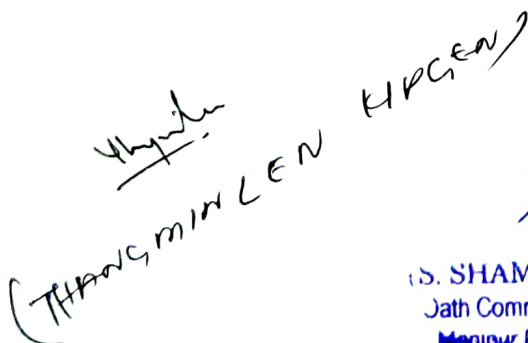 (THANGMINLEN KIPGEN)
(S. SHAM
Oath Comm
Manipur